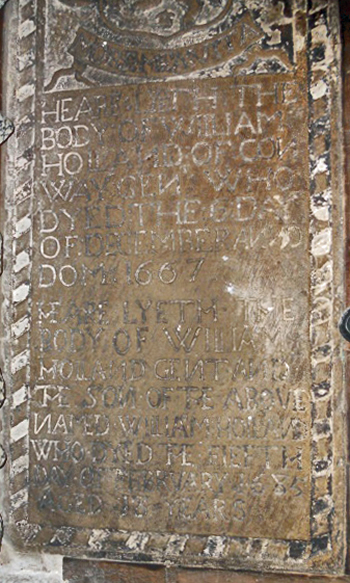 HEARE LYETH THE
BODY OF WILLIAM
HOLLAND OF CON
WAY GENT WHO
DYED THE 6 DAY
OF DECEMBER ANNO
DOM 1667
HEARE LYETH THE
BODY OF WILLIAM
HOLLAND GENT AND
THE SON OF THE ABOVE
NAMED WILLIAM HOLLAND
WHO DYED THE FIFETH
DAY OF FEBRUARY 1685
AGED YEARS